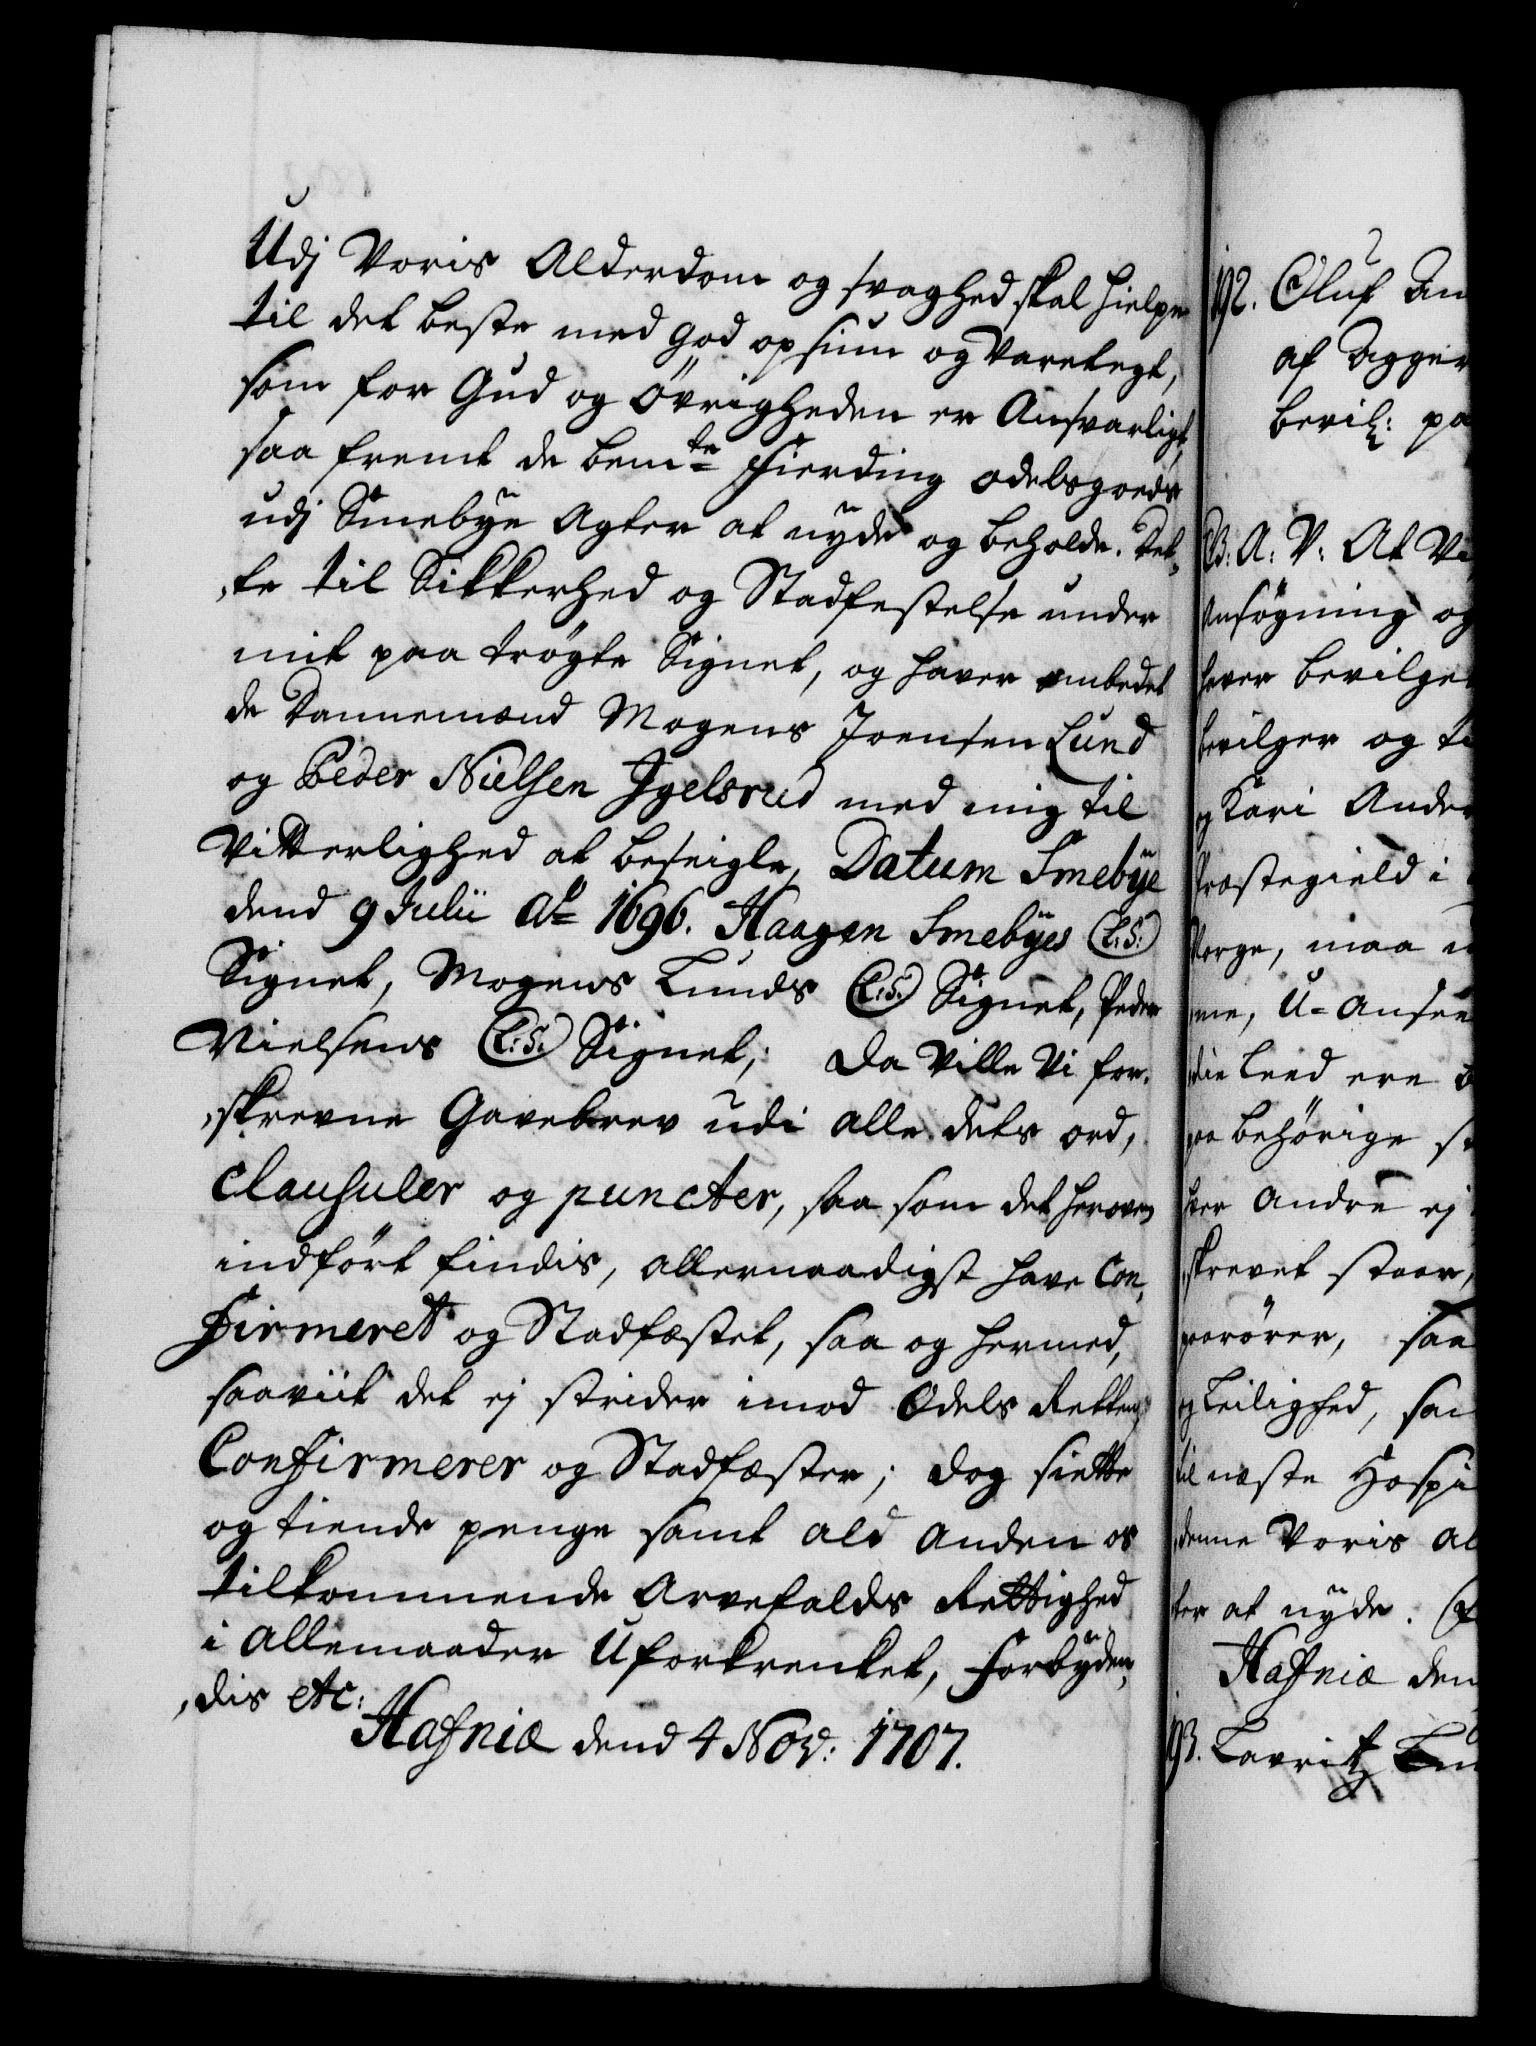 Udj Voris Alderdom og svaghed skal hielpe
til det beste med god opsiun og Varetegt,
som for Gud og Öfrigheden er Ansvarligt,
saa fremt de bemte Fierding odelsgoeds
udj Smebÿe Agter at nÿde og beholde. Det,
,te til Sikkerhed og Stadfestelse under
mit paa trögte Signet, og haver ombedet
de Dannemænd Mogens Joensen Lund
og Peder Nielsen Igelsrud med mig til
Vitterlighed at beseigle, Datum Smebÿe
dend 9 Julii Ao 1696. Haagen Smebÿes (L:S:)
Signet, Mogens Lunds (L:S:) Signet, Peder
Nielsens (L:S:) Signet; Da Ville Vi for,
,skrevne Gavebrev udi alle dets ord,
Clausuler og puncter, saa som det heroven
indfört findis, allernaadigst have Con,
firmeret og Stadfæstet, saa og hermed,
saaviit det ej strider imod Odels Retten,
Confirmerer og Stadfæster; dog siette
og tiende penge samt ald anden os
tilkommende Arvefalds Rettighed
i allemaader Uforkrenket, Forbÿden,
,dis etc:
Hafniæ dend 4 Nov: 1707.
192. Oluf An
af Agger
bevil: pa
B: A: V: At Vi
Ansögning og
haver bevilget
bevilger og ti
og Kari Ander
Præstegield i
Norge, maa u
me, U-anseet
die Leed ere b
paa behörige st
her andre ej
skrevet staar,
paarörer, saa
og Leilighed, sa
til næste Hospi
denne Voris al
ter at nÿde.
Hafniæ den
193. Lavritz Lu